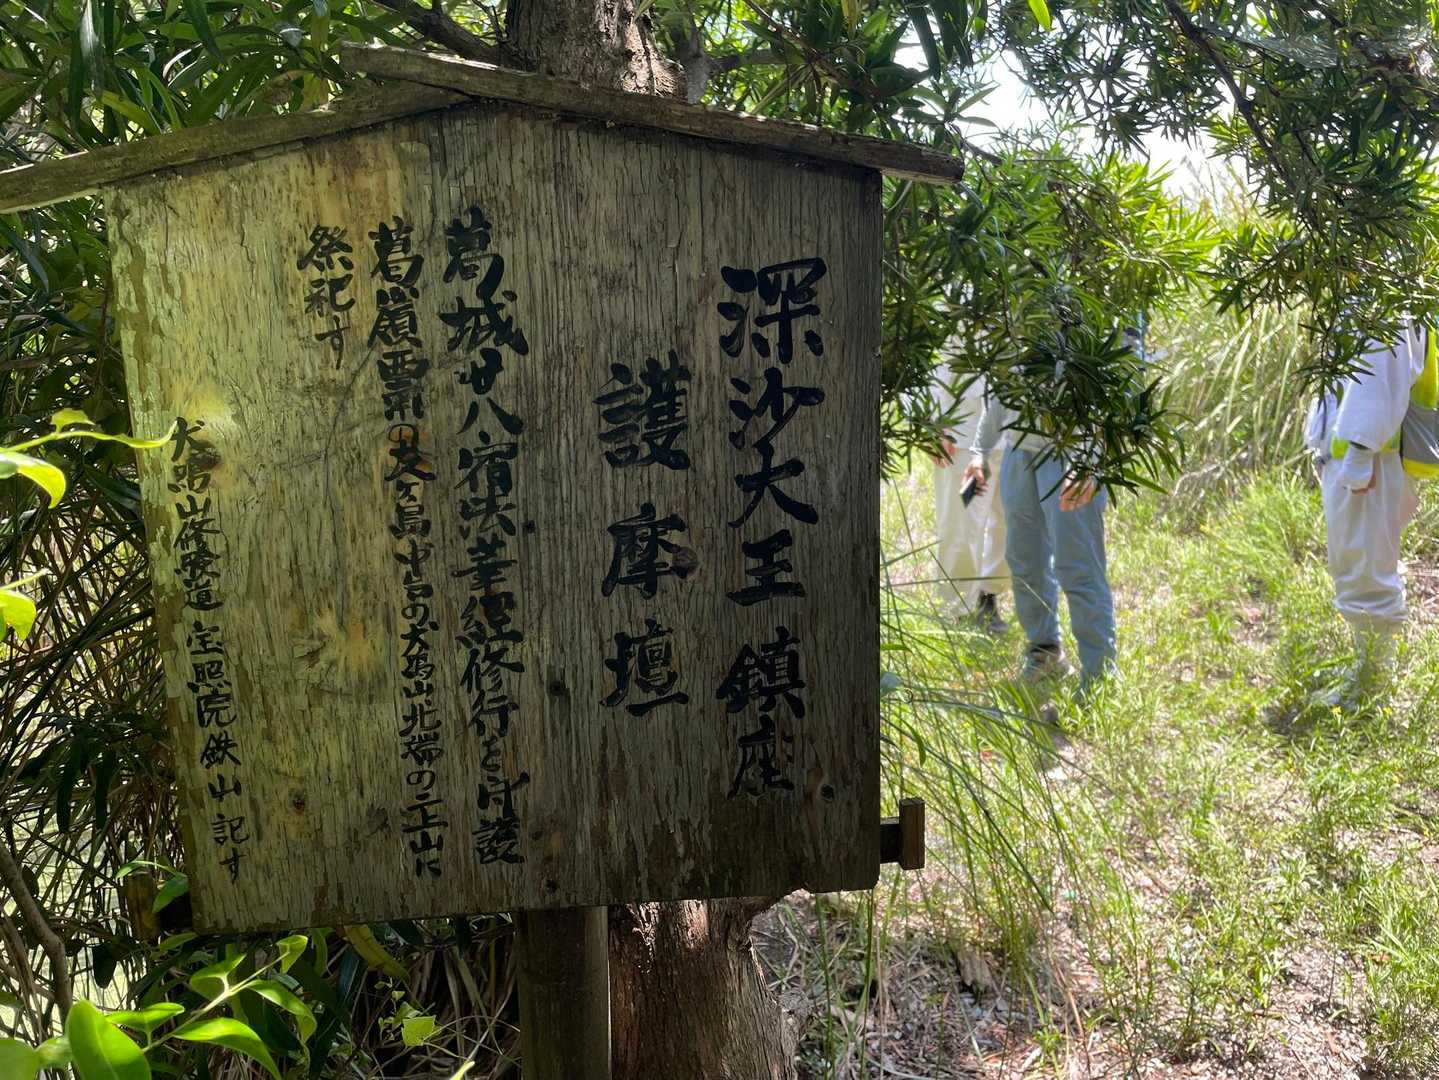 深沙大王鎮座
護摩壇
葛城廿八宿法華経修行を守護
葛嶺の友ヶ島中台の山北端の山に
祭祀す
犬鳴山修験道 宝照院鉄山記す